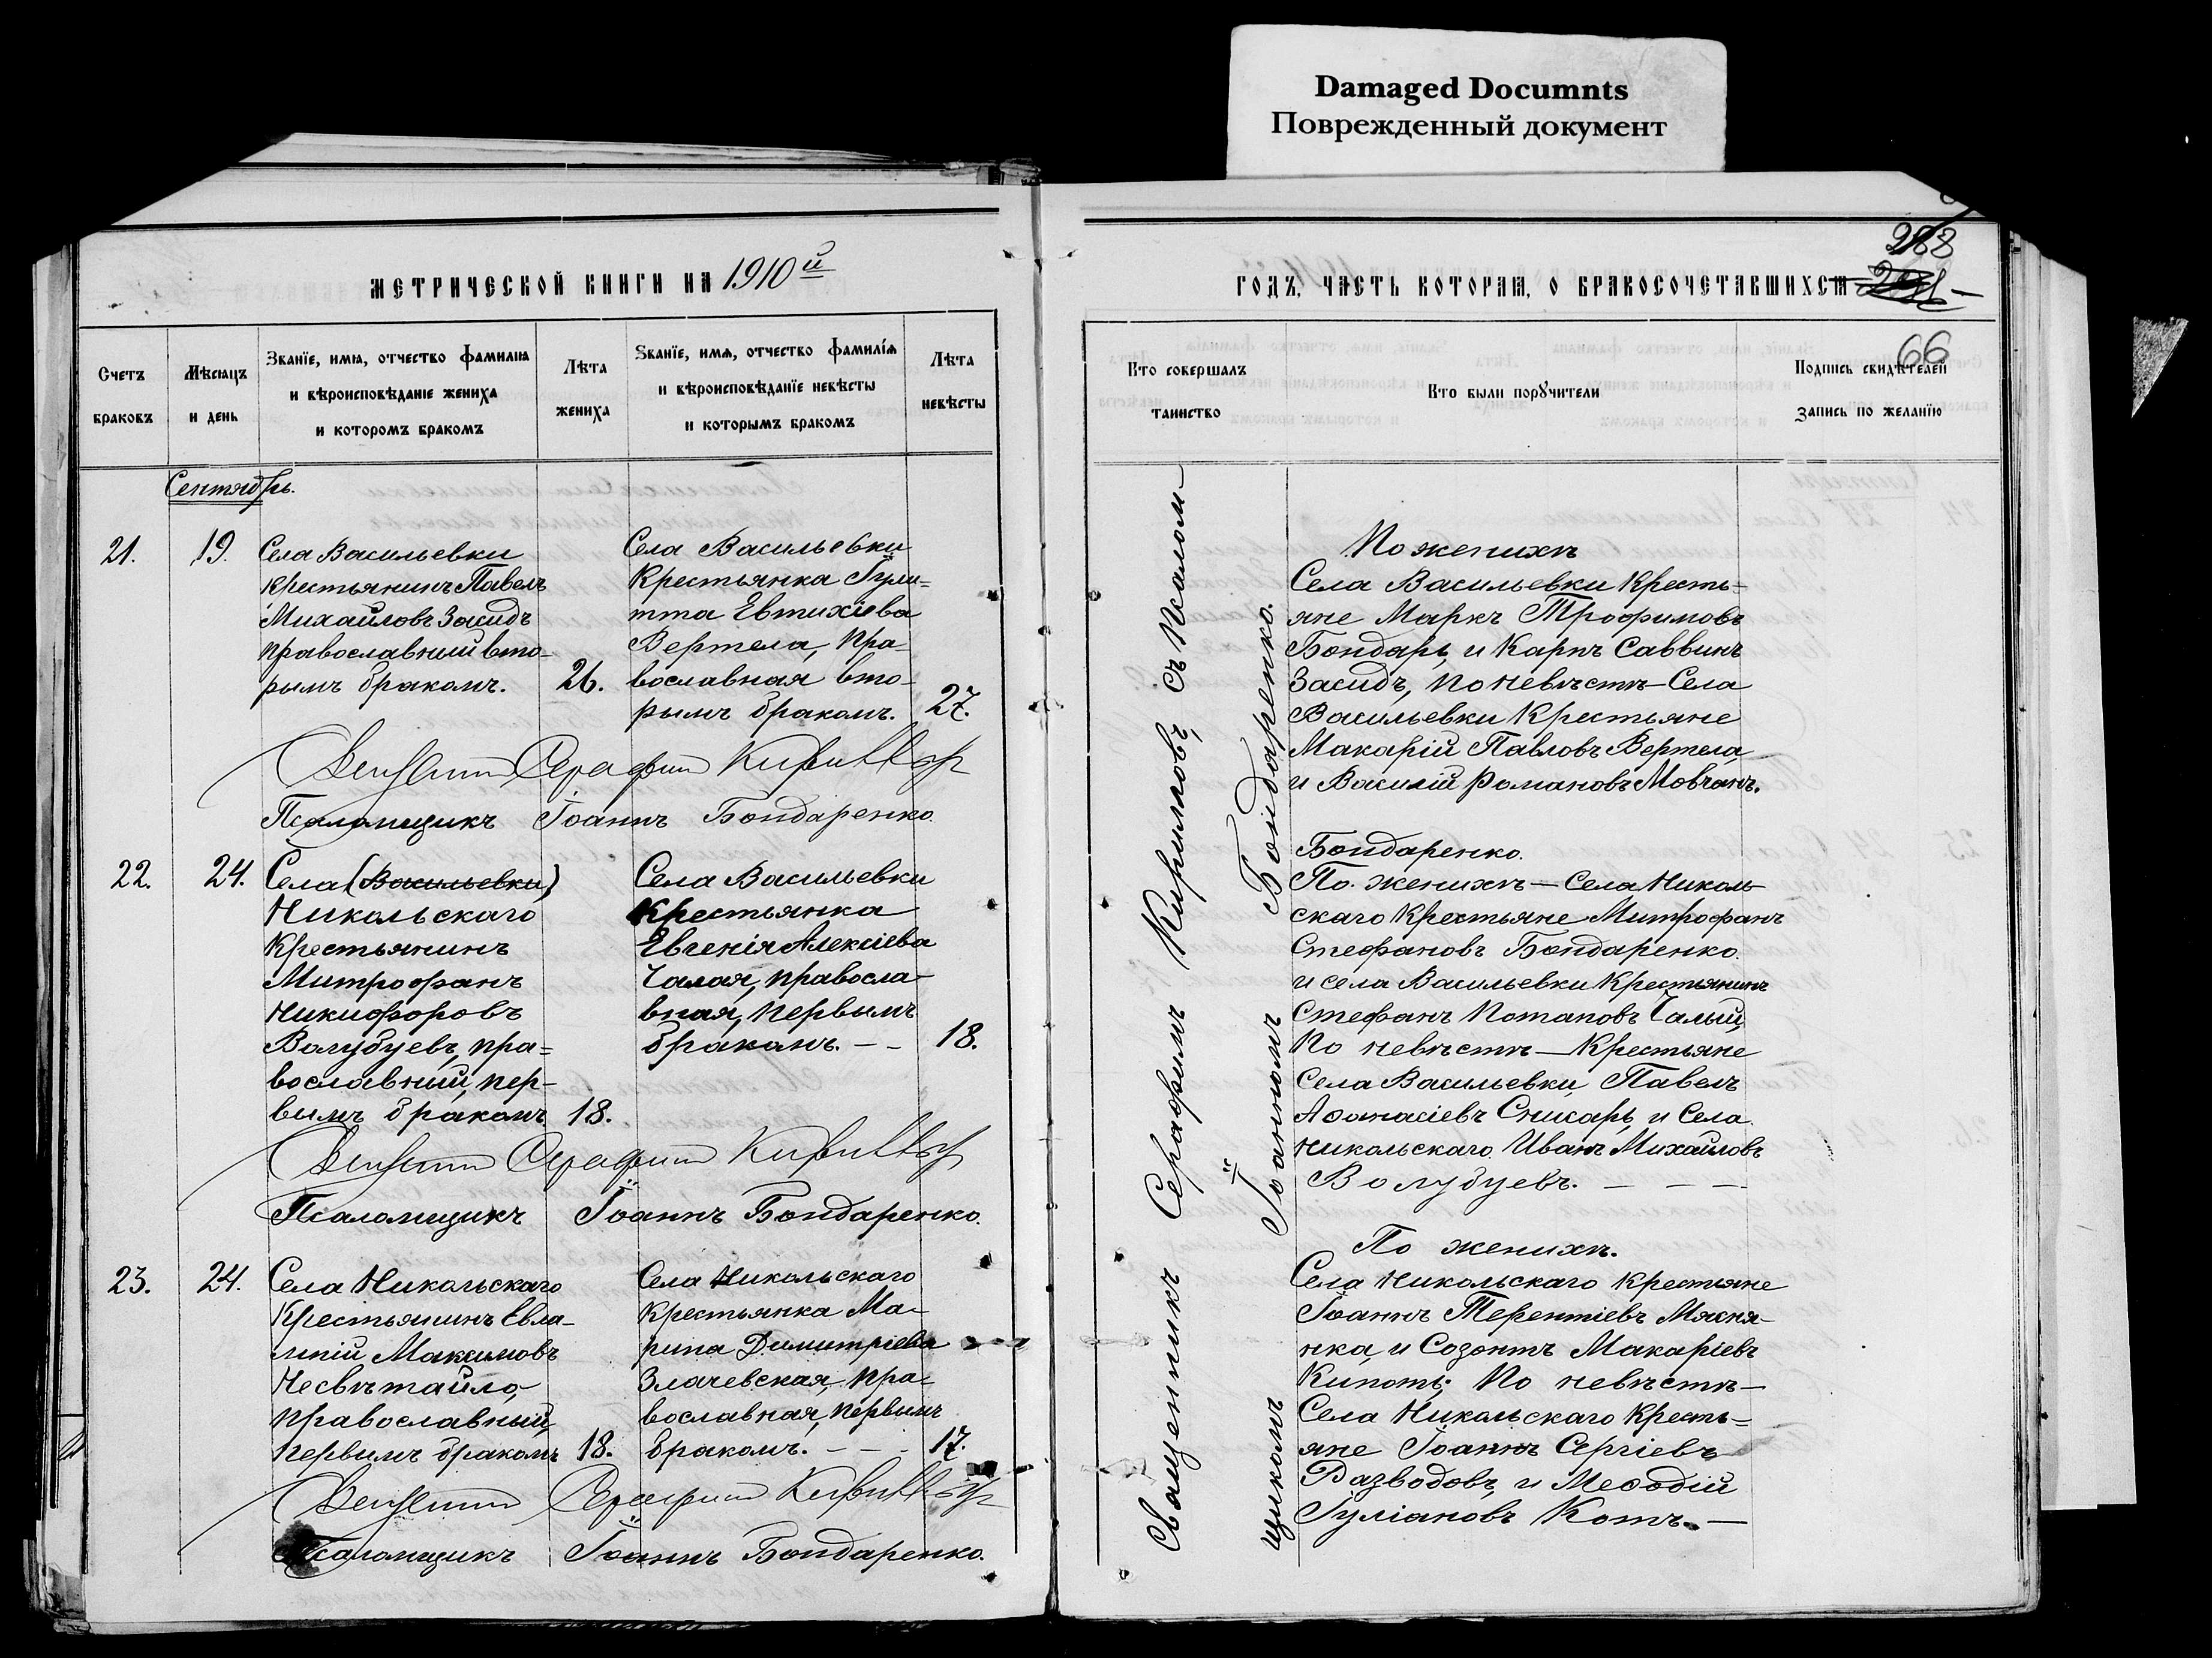 Damaged Documnts
Поврежденный документ
МЕТРИЧЕСКОЙ КНИГИ НА 1910й
Счетъ
браковъ
Мѣсяцъ
и день
Званіе, имя, отчество фамилія
и вѣроисповѣданіе жениха
и которомъ бракомъ
Лѣта
жениха
Званіе, имя, отчество фамилія
и вѣроисповѣданіе невѣсты
и которымъ бракомъ
Лѣта
невѣсты
Сентябрь.
21.
19.
Села Васильевки
крестьянинъ Павелъ
Михайловъ Засидъ
православный вто-
рымъ бракомъ.
26.
Села Васильевки
Крестьянка Іули-
тта Евтихіева
Вертела, пра-
вославная вто-
рымъ бракомъ.
27.
Серафим Кирилловъ
Псаломщикъ Іоаннъ Бондаренко.
22.
24.
Села (Васильевки)
Никольскаго
Крестьянинъ
Митрофанъ
Никифоровъ
Волубуевъ, пра=
вославный, пер-
вымъ бракомъ
18.
Села Васильевки
Крестьянка
Евгенія Алексіева
Чалая, правосла-
вная, первымъ
бракомъ. – –
18.
Серафим Кирилловъ
Псаломщикъ Іоаннъ Бондаренко.
23.
24.
Села Никольскаго
Крестьянинъ Евла-
мпій Максимовъ
Несвѣтайло,
православный,
первымъ бракомъ
18.
Села Никольскаго
Крестьянка Ма-
рина Димитріева
Злачевская, пра-
вославная, первымъ
бракомъ. – – –
17.
Серафим Кирилловъ
Псаломщикъ Іоаннъ Бондаренко.
288
ГОДЪ, ЧАСТЬ КОТОРАЯ, О БРАКОСОЧЕТАВШИХСЯ
66
Кто совершалъ
таинство
Кто были поручители
Подпись свидѣтелей
запись по желанію
Священникъ Серафимъ Кирилловъ, съ Псалом-
щикомъ Іоанномъ Бондаренко.
По женихѣ
Села Васильевки Кресть=
яне Маркъ Трофимовъ
Бондарь, и Карпъ Саввинъ
Засидъ, по невѣстѣ – Села
Васильевки Крестьяне
Макарій Павловъ Вертела,
и Василій Романовъ Мовчанъ.
Бондаренко.
По женихѣ – Села Николь-
скаго Крестьяне Митрофанъ
Стефановъ Бондаренко.
и села Васильевки Крестьянинъ
Стефанъ Потаповъ Чалый,
По невѣстѣ – Крестьяне
Села Васильевки, Павелъ
Аѳанасіевъ Сникарь, и Села
Никольскаго Иванъ Михайловъ
Волубуевъ. – – –
По женихѣ.
Села Никольскаго Крестьяне
Іоаннъ Терентіевъ Мясня-
нка, и Созонтъ Макаріевъ
Кипоть; По невѣстѣ –
Села Никольскаго Кресть=
яне Іоаннъ Сергіевъ
Разводовъ, и Меѳодій
Іуліановъ Котъ. –